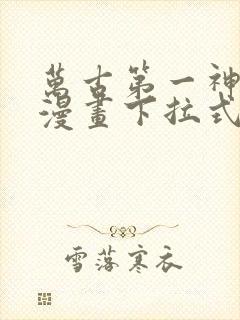 萬古第一神
漫畫下拉式
雪落寒衣